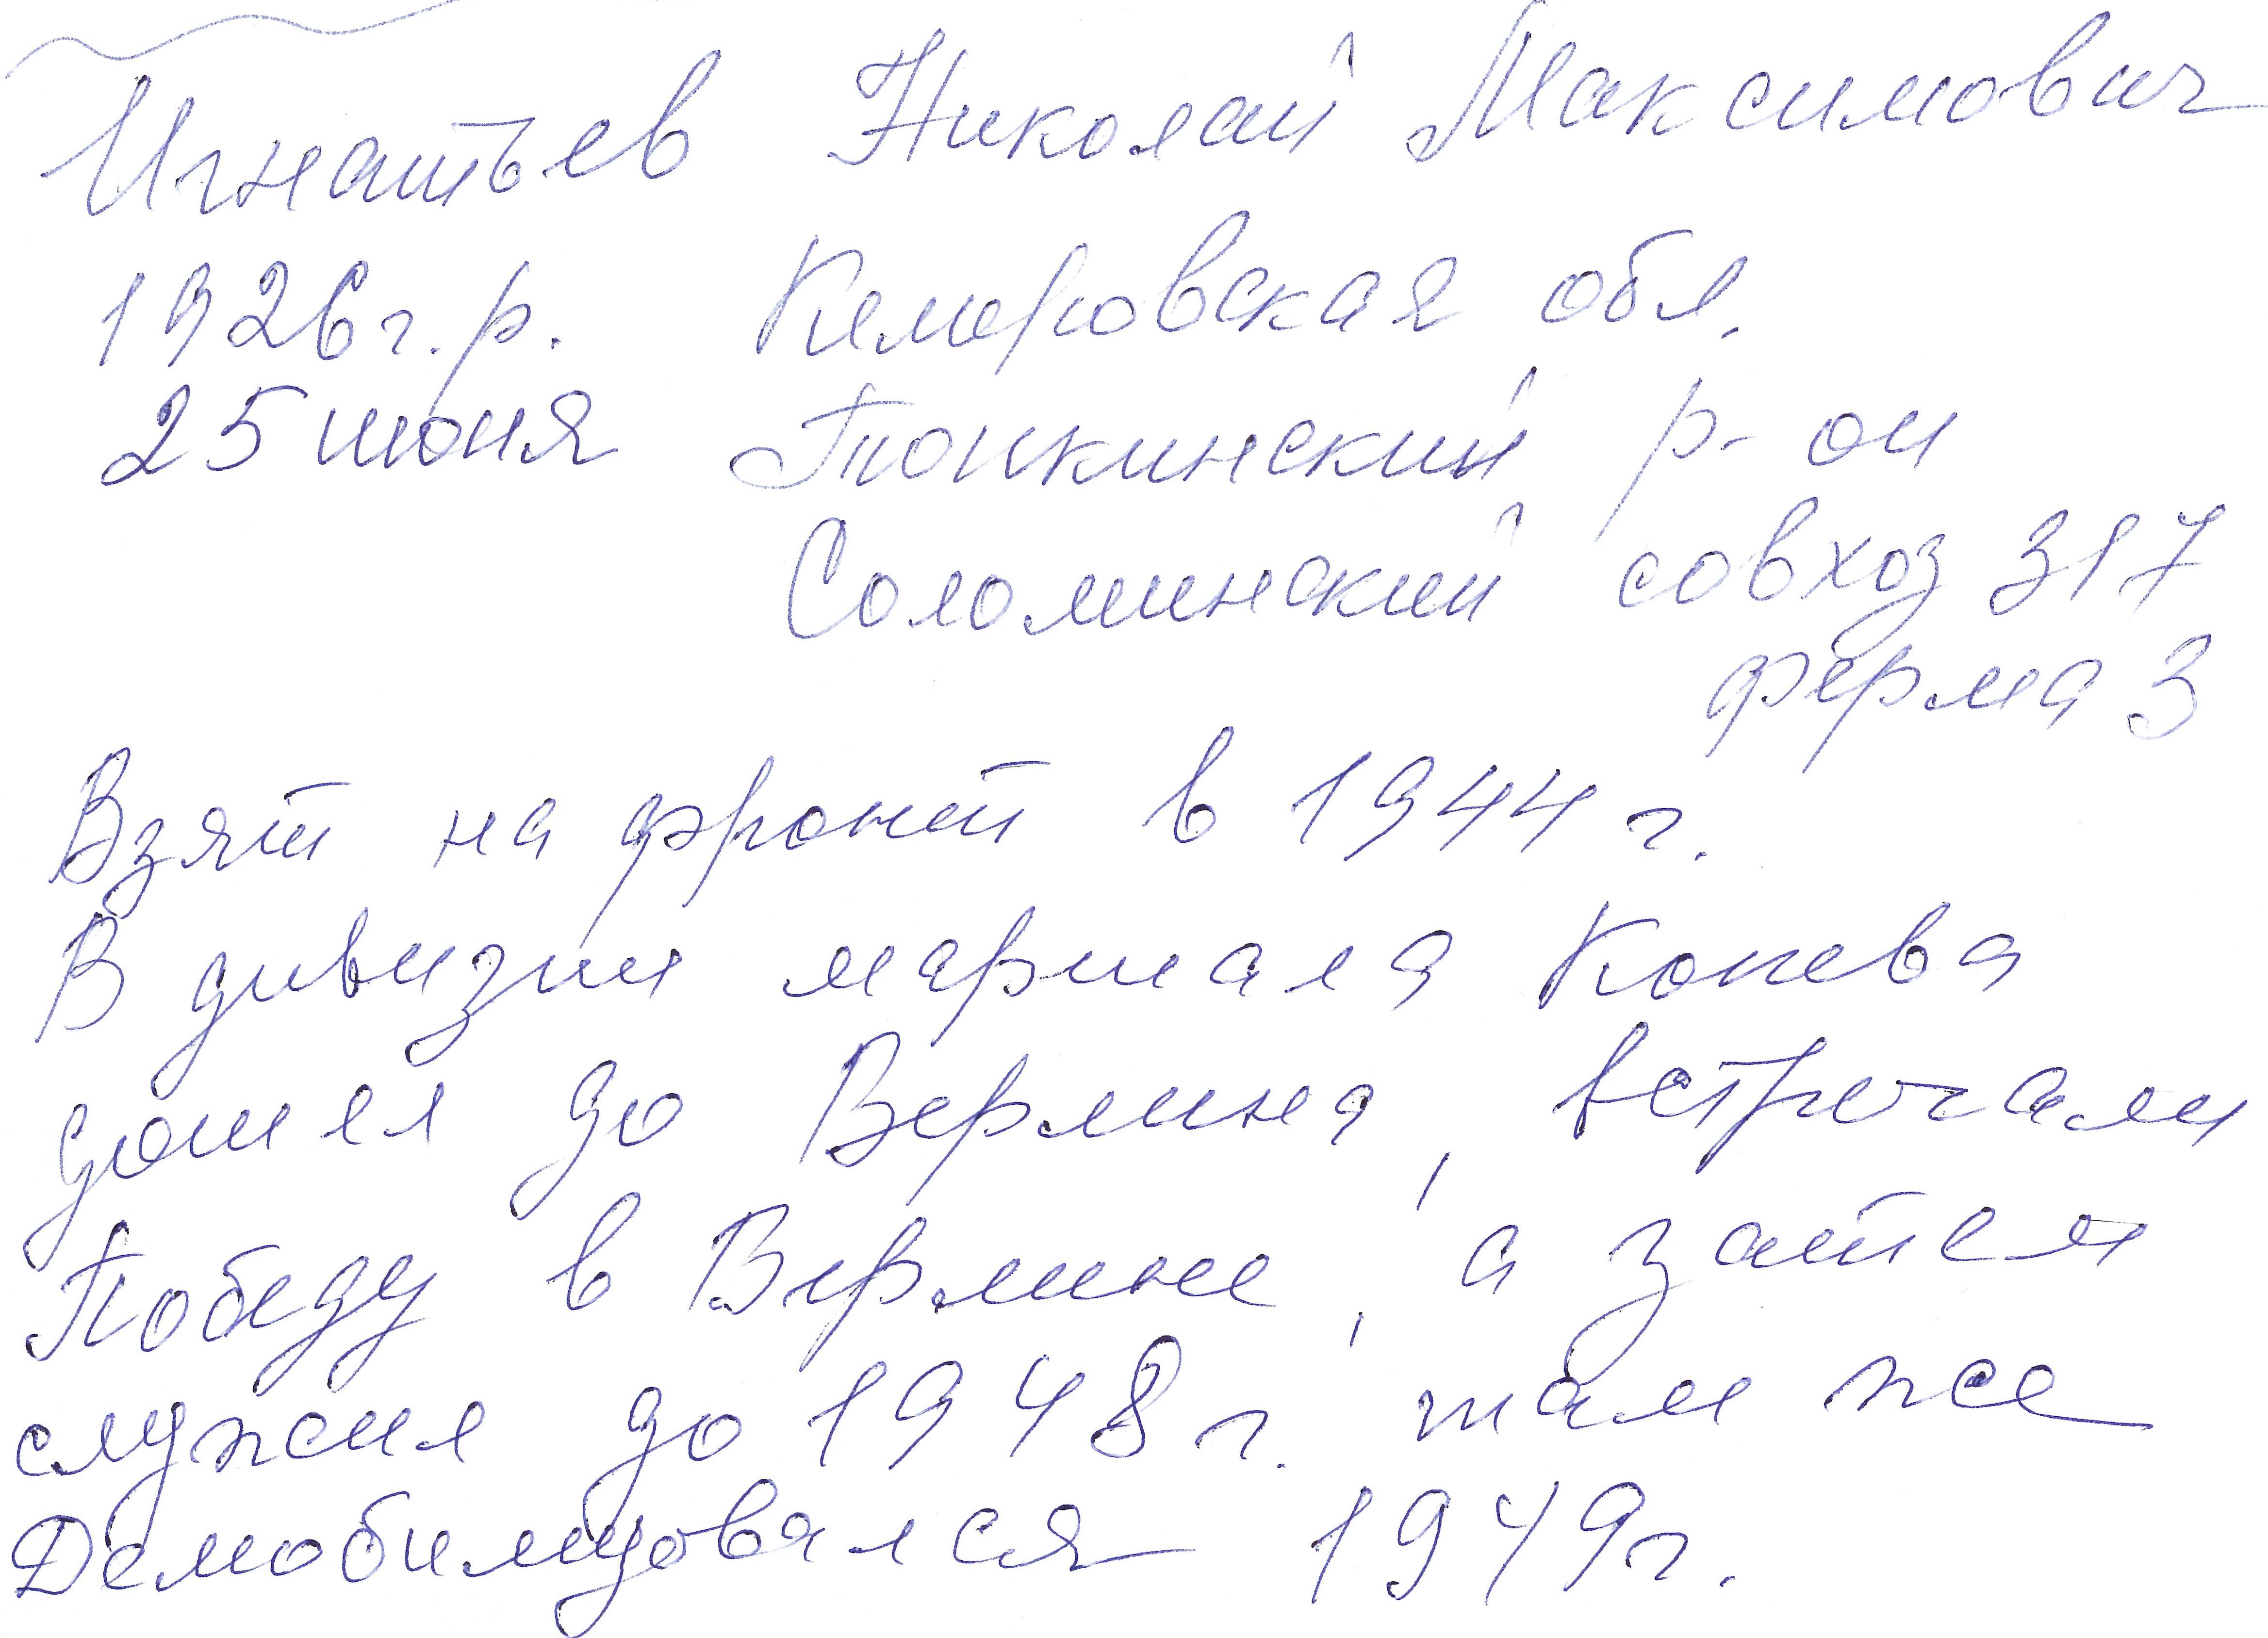 Игнатьев Николай Максимович
1926г.р. Кемеровская обл.
25 июня Топкинский р-он
Соломинский совхоз 317
ферма 3
Взят на фронт в 1944 г.
В дивизии маршала Конева
дошел до Берлина, встречали
Победу в Берлине, а затем
служил до 1948 г. там же
Демобилизовался 1949г.